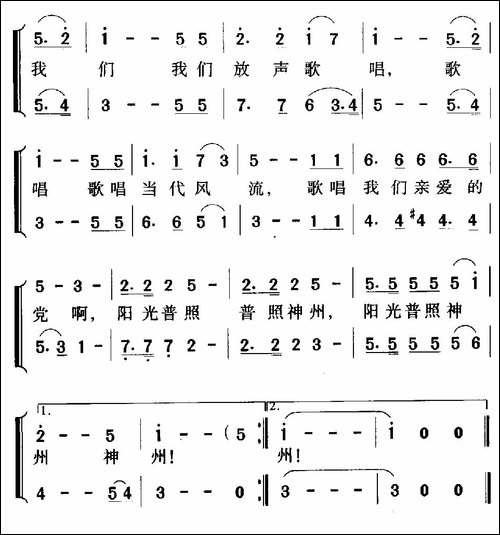 5. 2 | i - - 5 5 | 2. 2 i 7 | i - - 5. 2 |
我 们 我们 放 声歌 唱, 歌
5. 4 | 3 - - 5 5 | 7. 7 6 3.4 | 5 - - 5. 4 |
i - - 5 5 | i. i 7 3 | 5 - - 1 1 | 6. 6 6 6. 6 |
唱 歌唱 当代风 流, 歌唱 我们亲爱的
3 - - 5 5 | 6. 6 5 1 | 3 - - 1 1 | 4. 4 #4 4. 4 |
5 - 3 - | 2. 2 2 5 - | 2. 2 2 5 - | 5. 5 5 5 5 i |
党 啊, 阳光普照 普照神州, 阳光普照神
5. 3 1 - | 7. 7 7 2 - | 2. 2 2 3 - | 5. 5 5 5 5 6 |
1. 2.
2 - - 5 | i - - (5 :| i - - - | i 0 0 |
州 神 州! 州!
4 - - 5 4 | 3 - - 0 :| 3 - - - | 3 0 0 |